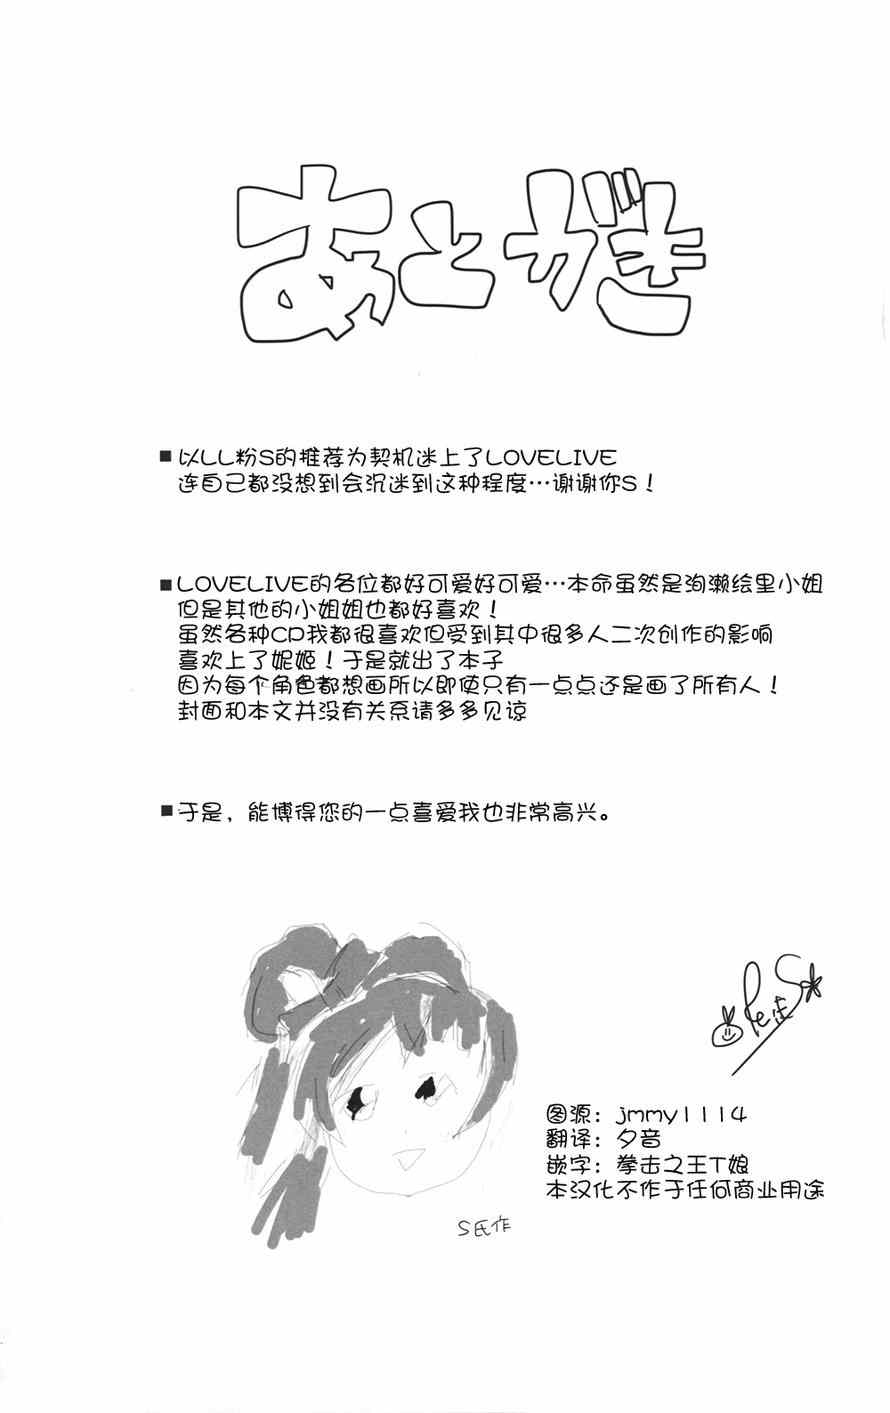 あとがき
■以LL粉S的推荐为契机迷上了LOVELIVE
连自己都没想到会沉迷到这种程度…谢谢你S！
■LOVELIVE的各位都好可爱好可爱…本命虽然是洵濑绘里小姐
但是其他的小姐姐也都好喜欢！
虽然各种CP我都很喜欢但受到其中很多人二次创作的影响
喜欢上了妮姬！于是就出了本子
因为每个角色都想画所以即使只有一点点还是画了所有人！
封面和本文并没有关系请多多见谅
■于是，能博得您的一点喜爱我也非常高兴。
S氏作
图源：jmmy1114
翻译：夕音
嵌字：拳击之王T娘
本汉化不作于任何商业用途